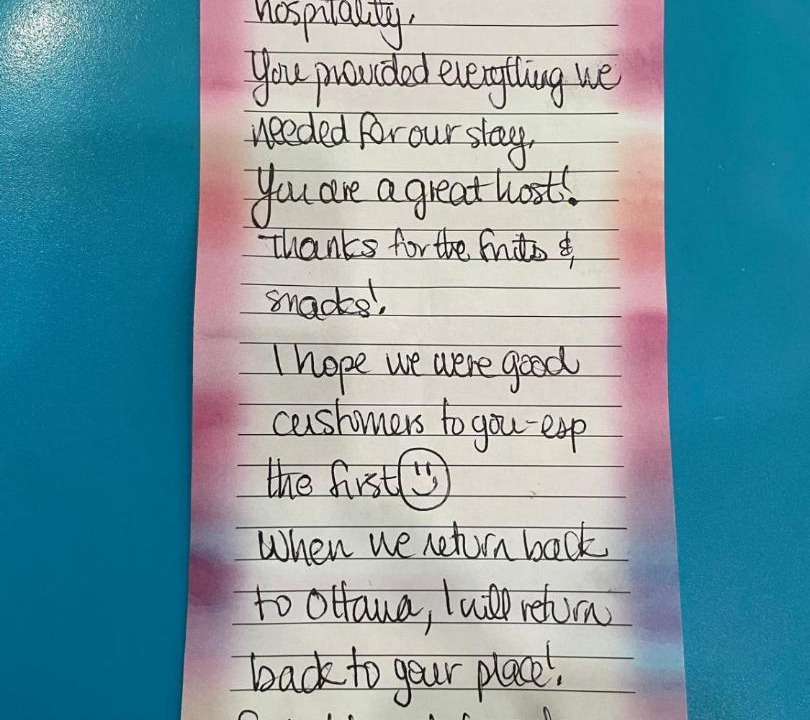 hospitality.
You provided everything we
needed for our stay.
You are a great host!
Thanks for the fruits &
snacks!
I hope we were good
customers to you-esp
the first
When we return back
to Ottawa, I will return
back to your place!